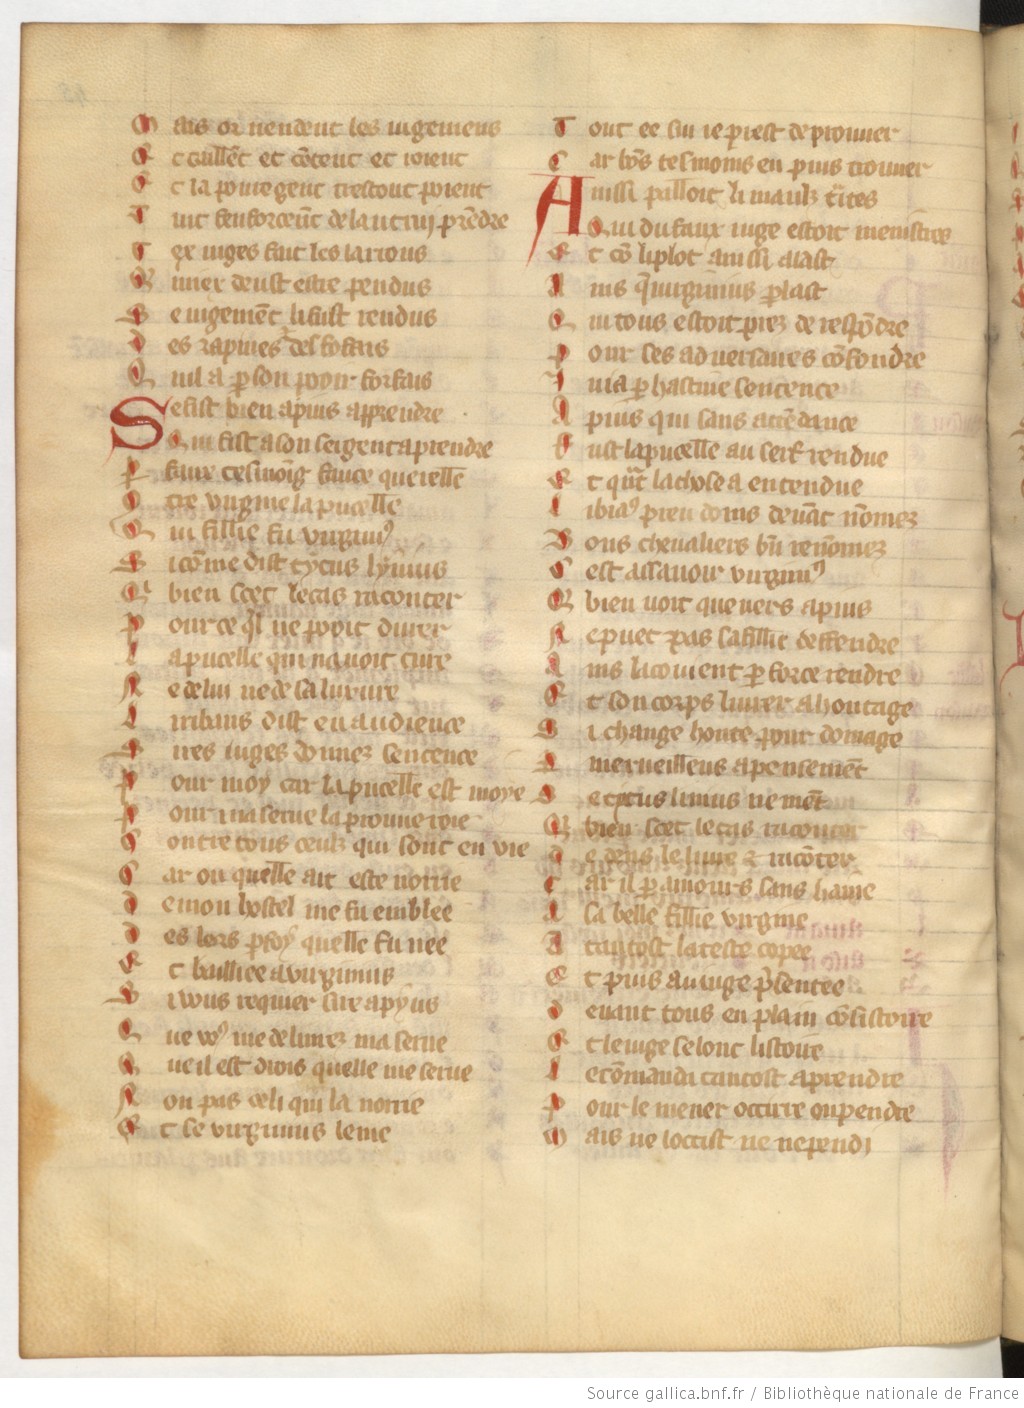 Mais or vendent les iugemens
Et cuillẽt et cõtent et roient
Et la poure gent trestout poient
Tuit sefforcent de lautrui prẽdre
Tex iuges fait les larrons
Miex deust estre pendus
Se iugemẽt li fust rendus
Des rapines et des forfais
Quil a ꝑ son pooir forfais
Se fist bien apius apprendre
Qui fist a son seigent aprendre
P faux tesmoīg fauce querelle
Cõtre virgine la pucelle
Qui fillie fu virgini9
Si cõme dist tytus lyuius
Qui bien scet le cas raconter
Pour ce qͥl ne pooit donter
La pucelle qui nauoit cure
Ne de lui ne de sa luxure
Li ribaus dist en audience
Sires iuges donnez sentence
Pour moy car la pucelle est moye
Pour ma serue la prouueroie
Contre tous ceulz qui sont en vie
Car ou quelle ait este norrie
De mon hostel me fu emblee
Des lors pͥ soy quelle fu nee
Et bailliee a virginius
Si vous requier sire apyus
Que vo9 me deliurez ma serue
Quil est drois quelle me serue
Non pas celi qui la norrie
Et se virginius le nie
Tout ce sui ie prest de prouuer
Car bõs tesmoins en puis trouuer
Ainssi palloit li maulz tͥtes
Qui du faux iuge estoit menistres
Et cõ li plot ainssi alast
Ains qͥ virginius ꝑlast
Qui tous estoit prez de respõdre
Pour ses aduersaires cõfondre
Iuia ꝑ hastiue sentence
Apius qui sans attẽdance
Fust la pucelle au serf rendue
Et qͣt la chose a entendue
Li bia9 preudoms deuãt nõmez
Bons cheualiers bñ renõmez
Cest assauoir virgini9
Qui bien voit que vers apius
Ne puet pas sa fillie deffendre
Ains li couient ꝑ force rendre
Et son corps liurer a hontage
Si change honte pour domage
Merueilleus apensemẽt
Se tytus liuius ne mẽt
Qui bien scet le cas raconter
Car il ꝑ amours sans haine
A sa belle fillie virgine
A tantost la teste copee
Et puis au iuge pͥsentee
Deuant tous en plain cõsistoire
Et le iuge selonc listoire
Le cõmanda tantost a prendre
Pour le mener occirre ou pendre
Mais ne loccist ne ne pendi
Source gallica.bnf.fr / Bibliothèque nationale de France